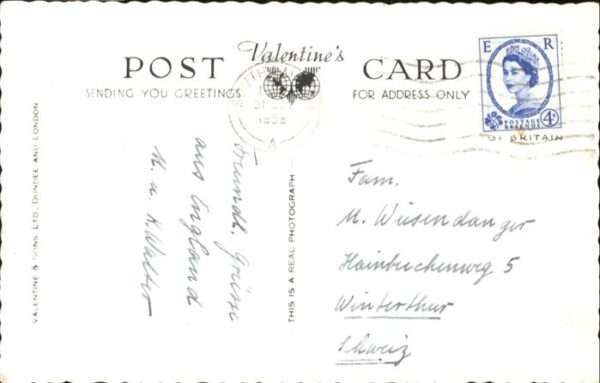 Valentine's
POST CARD
SENDING YOU GREETINGS
FOR ADDRESS ONLY
E R
POSTAGE
REVENUE
4D
OF BRITAIN
1958
A
VALENTINE & SONS, LTD., DUNDEE AND LONDON
Freundl. Grüsse
aus England
M. u. K. Walter
THIS IS A REAL PHOTOGRAPH
Fam.
M. Wiesendanger
Hainbuchenweg 5
Winterthur
Schweiz